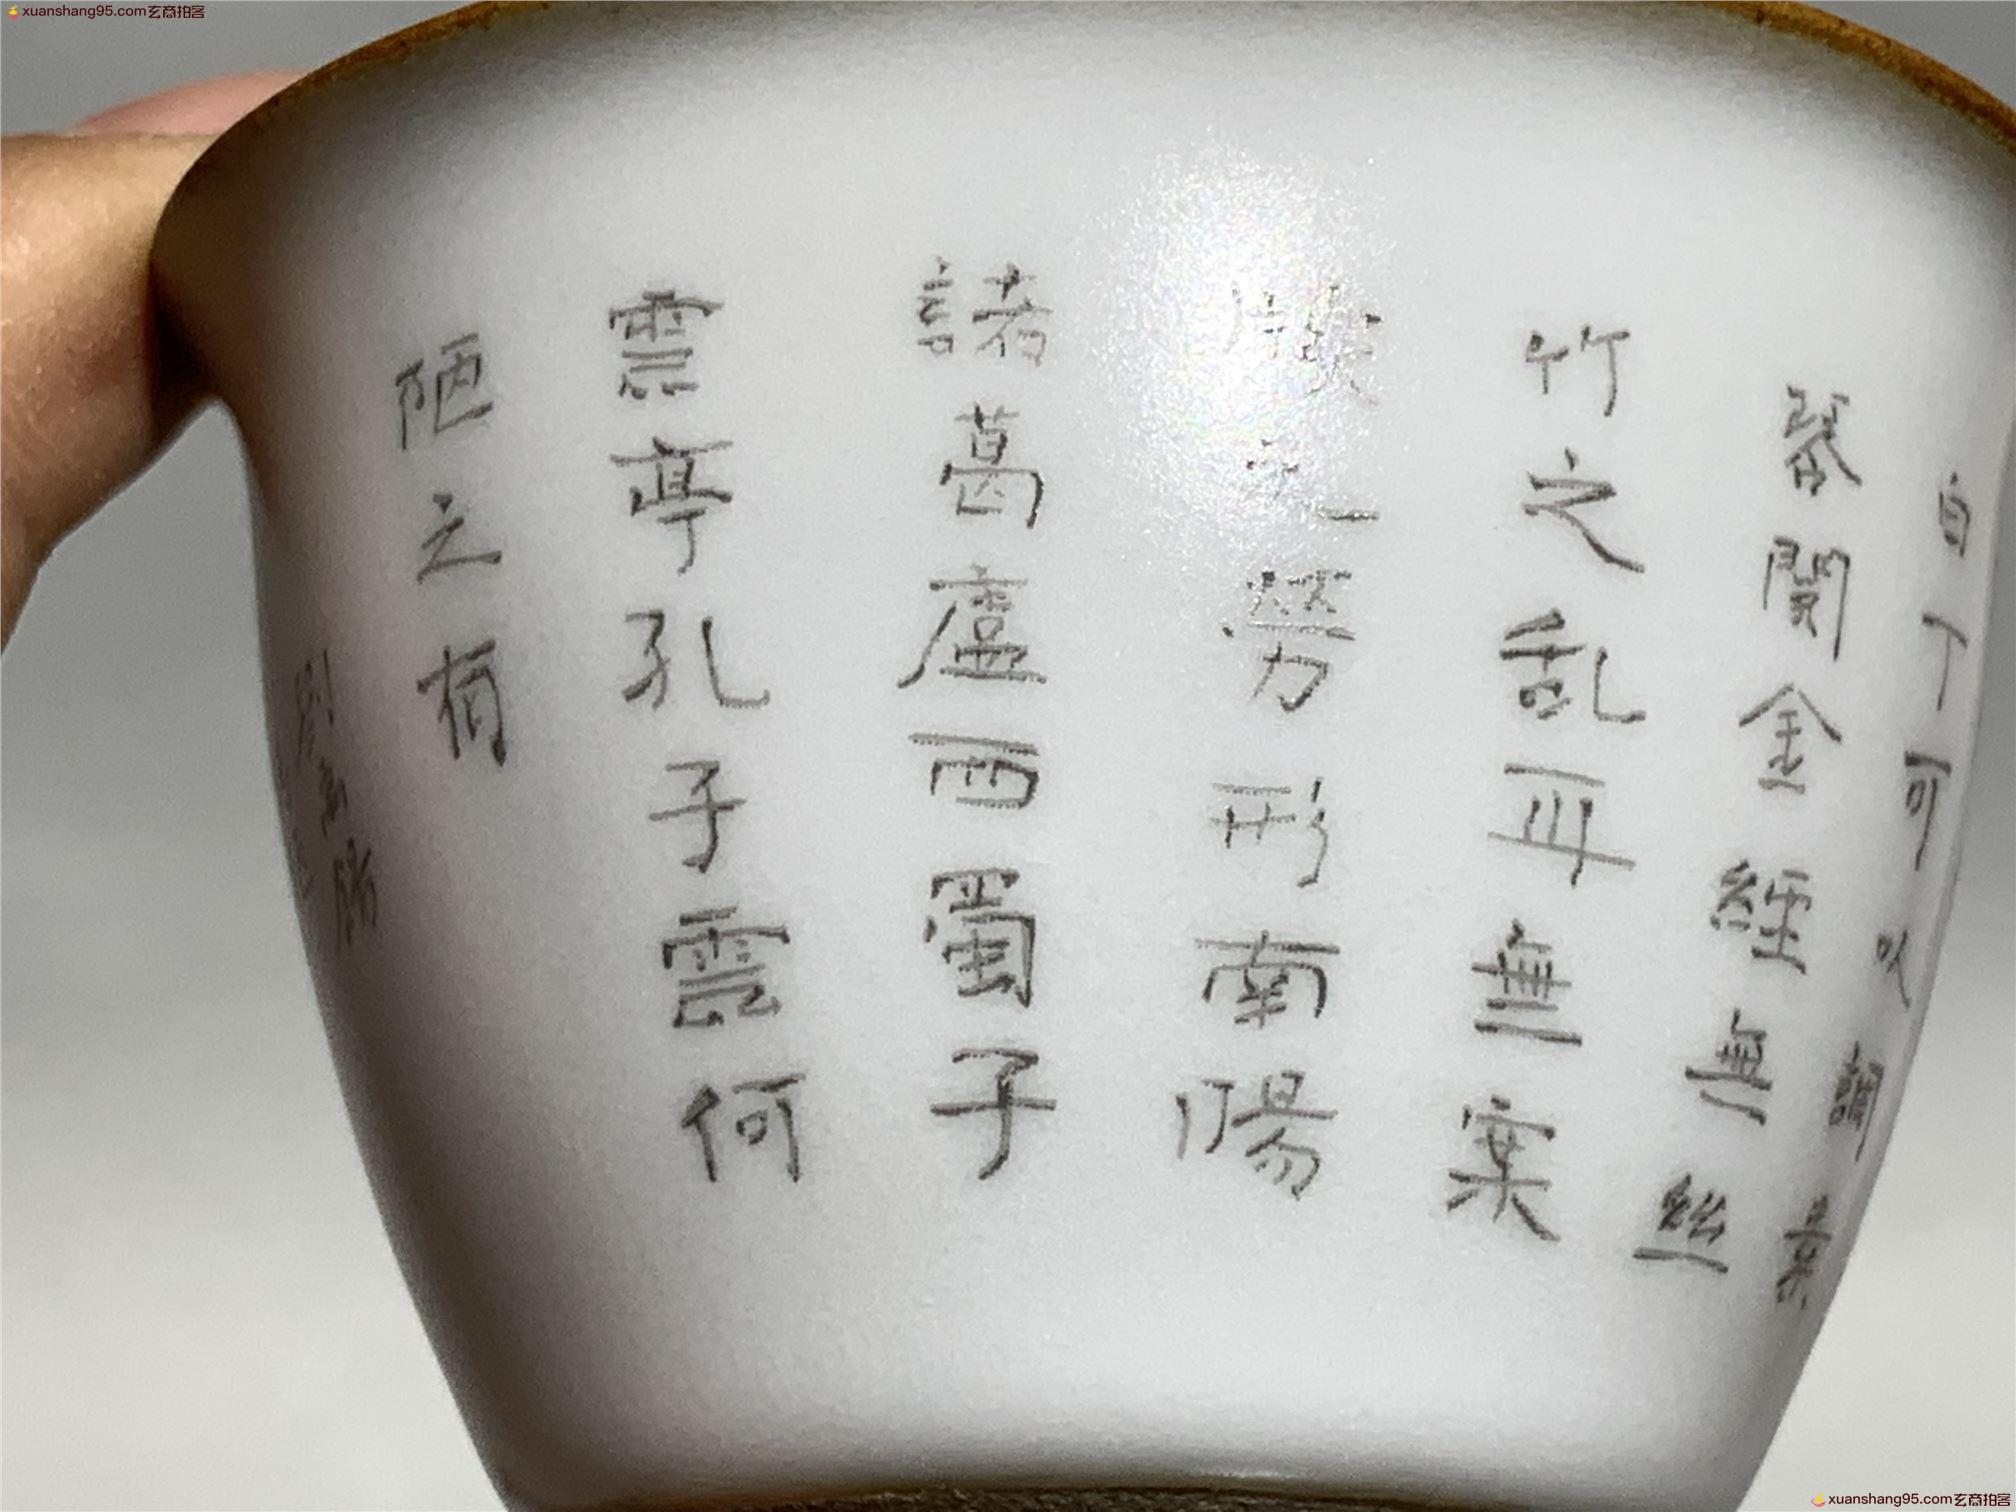 xuanshang95.com玄商拍客
白丁可以調素
琴閱金經無絲
竹之乱耳無案
牘之勞形南陽
諸葛廬西蜀子
雲亭孔子雲何
陋之有
xuanshang95.com玄商拍客